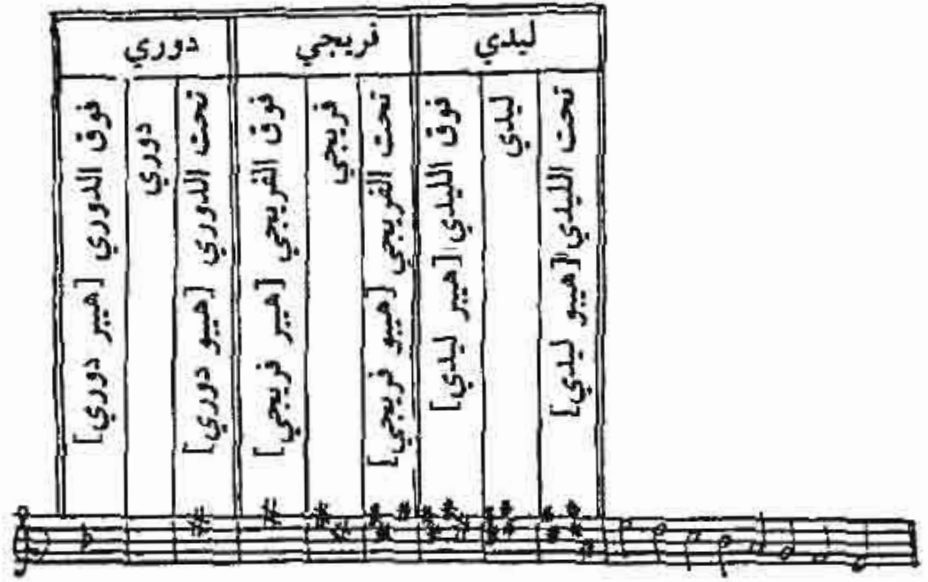 ليدي
فريجي
دوري
تحت الليدي [هيبو ليدي]
ليدي
فوق الليدي [هيبر ليدي]
تحت الفريجي [هيبو فريجي]
فريجي
فوق الفريجي [هيبر فريجي]
تحت الدوري [هيبو دوري]
دوري
فوق الدوري [هيبر دوري]